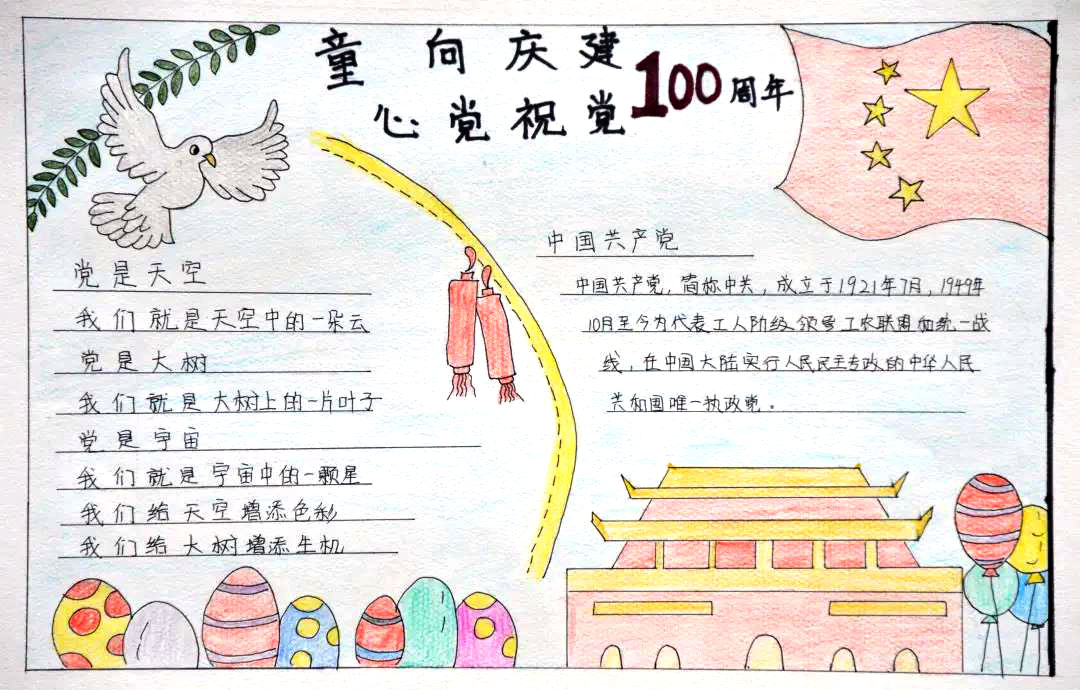 童心向党庆祝建党100周年
党是天空
我们就是天空中的一朵云
党是大树
我们就是大树上的一片叶子
党是宇宙
我们就是宇宙中的一颗星
我们给天空增添色彩
我们给大树增添生机
中国共产党
中国共产党，简称中共，成立于1921年7月，1949年
10月至今为代表工人阶级领导工农联盟和统一战
线，在中国大陆实行人民民主专政的中华人民
共和国唯一执政党。